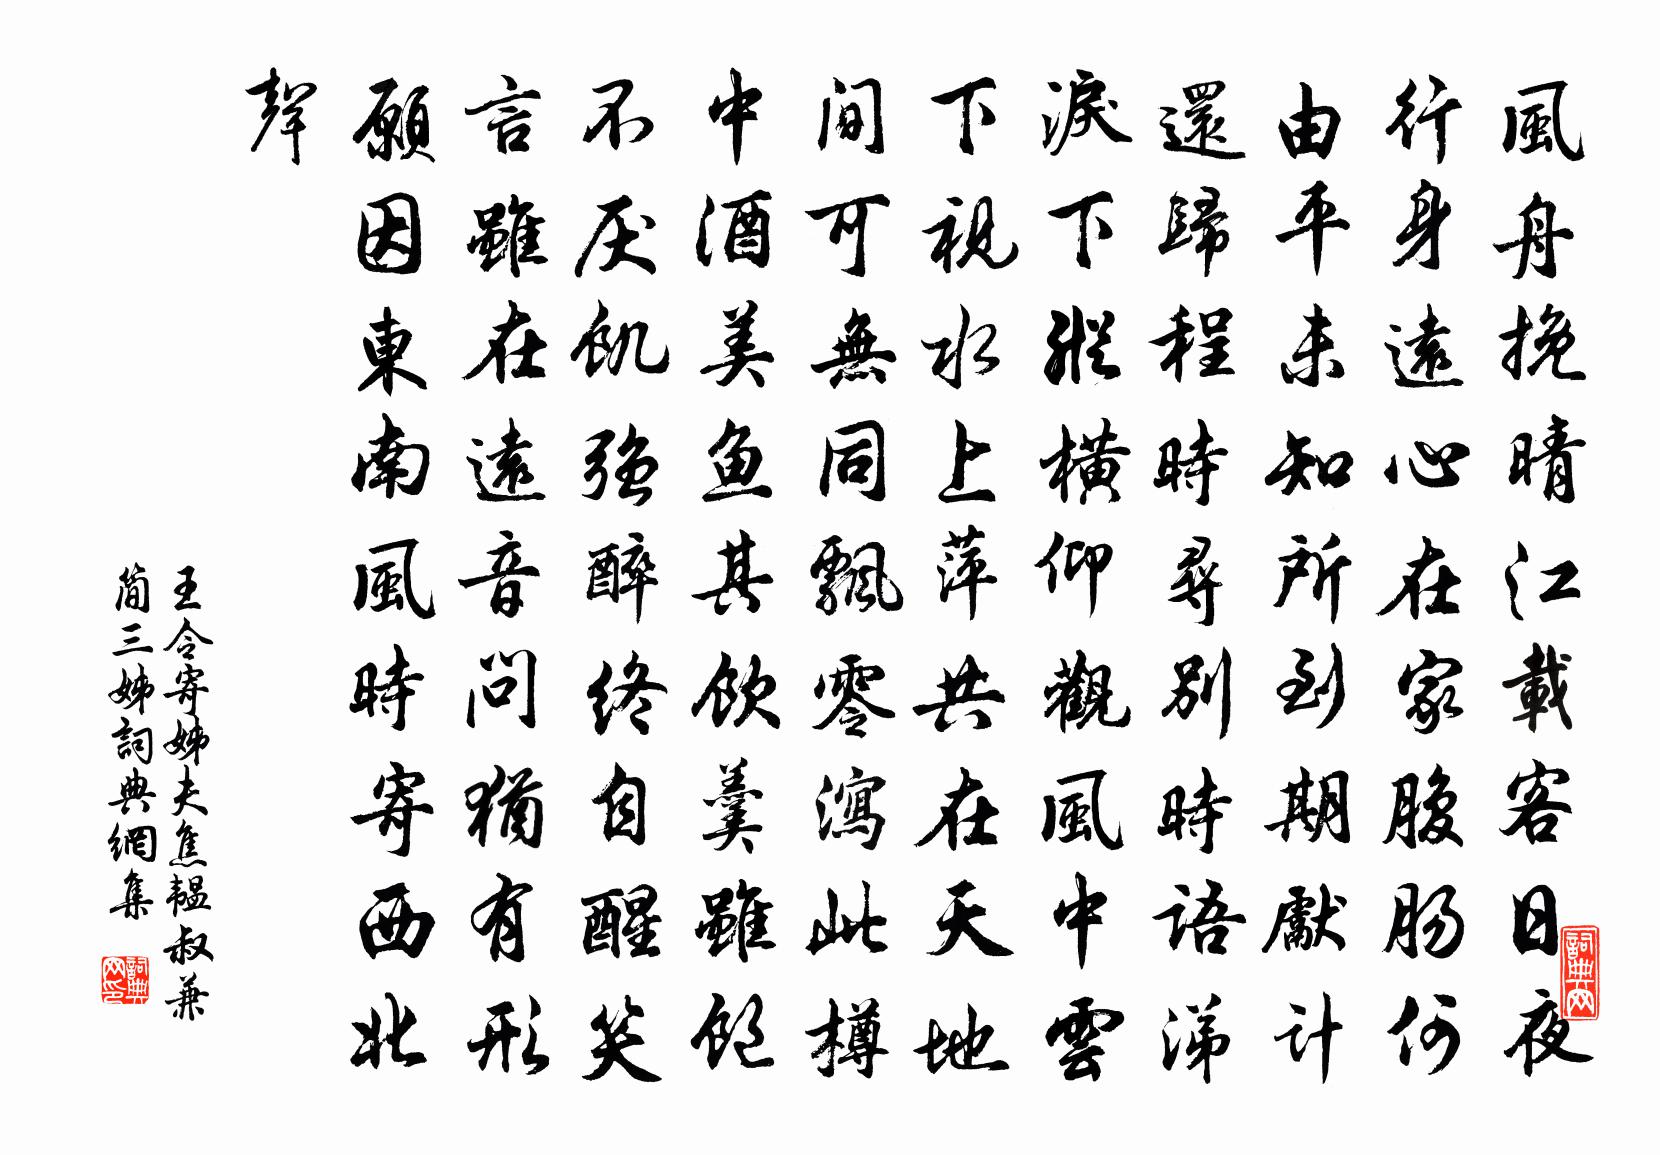 風舟挽晴江載客日夜
行身遠心在家腹肠何
由平未知所到期獻計
還歸程時尋別時語涕
淚下縱橫仰觀風中雲
下視水上萍共在天地
间可無同飄零瀉此樽
中酒美魚其飲羹雖飽
不厌飢強醉终自醒笑
言雖在遠音问猶有形
願因東南風時寄西北
聲
王令寄姊夫焦韞叔兼
简三姊詞典網集
詞典网
詞典网印